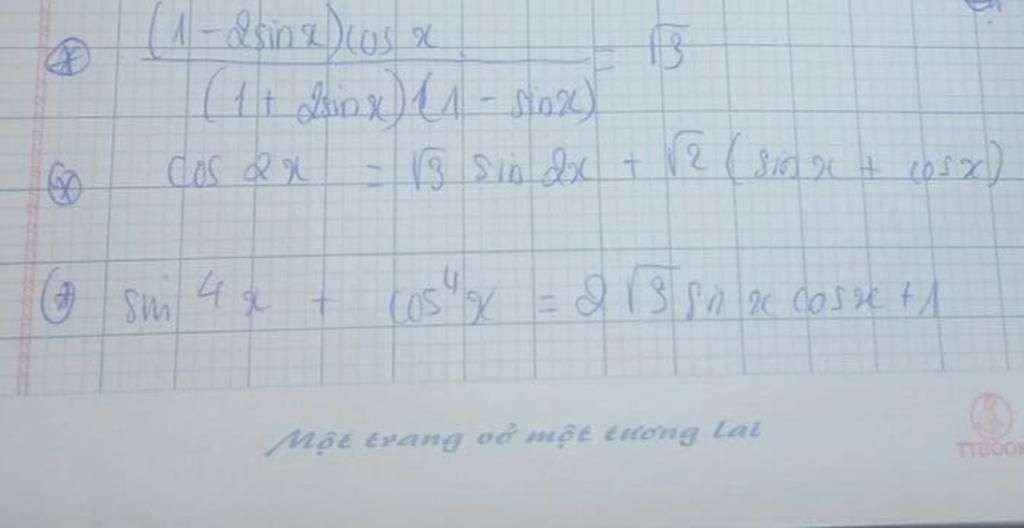 (1 - 2sinx)cos x / (1 + 2sinx)(1 - sinx) = √3
cos 2x = √3 sin 2x + √2 (sin x + cosx)
sin⁴x + cos⁴x = 2√3 sin x cosx + 1
Một trang vở một tương lai
TTBOOK